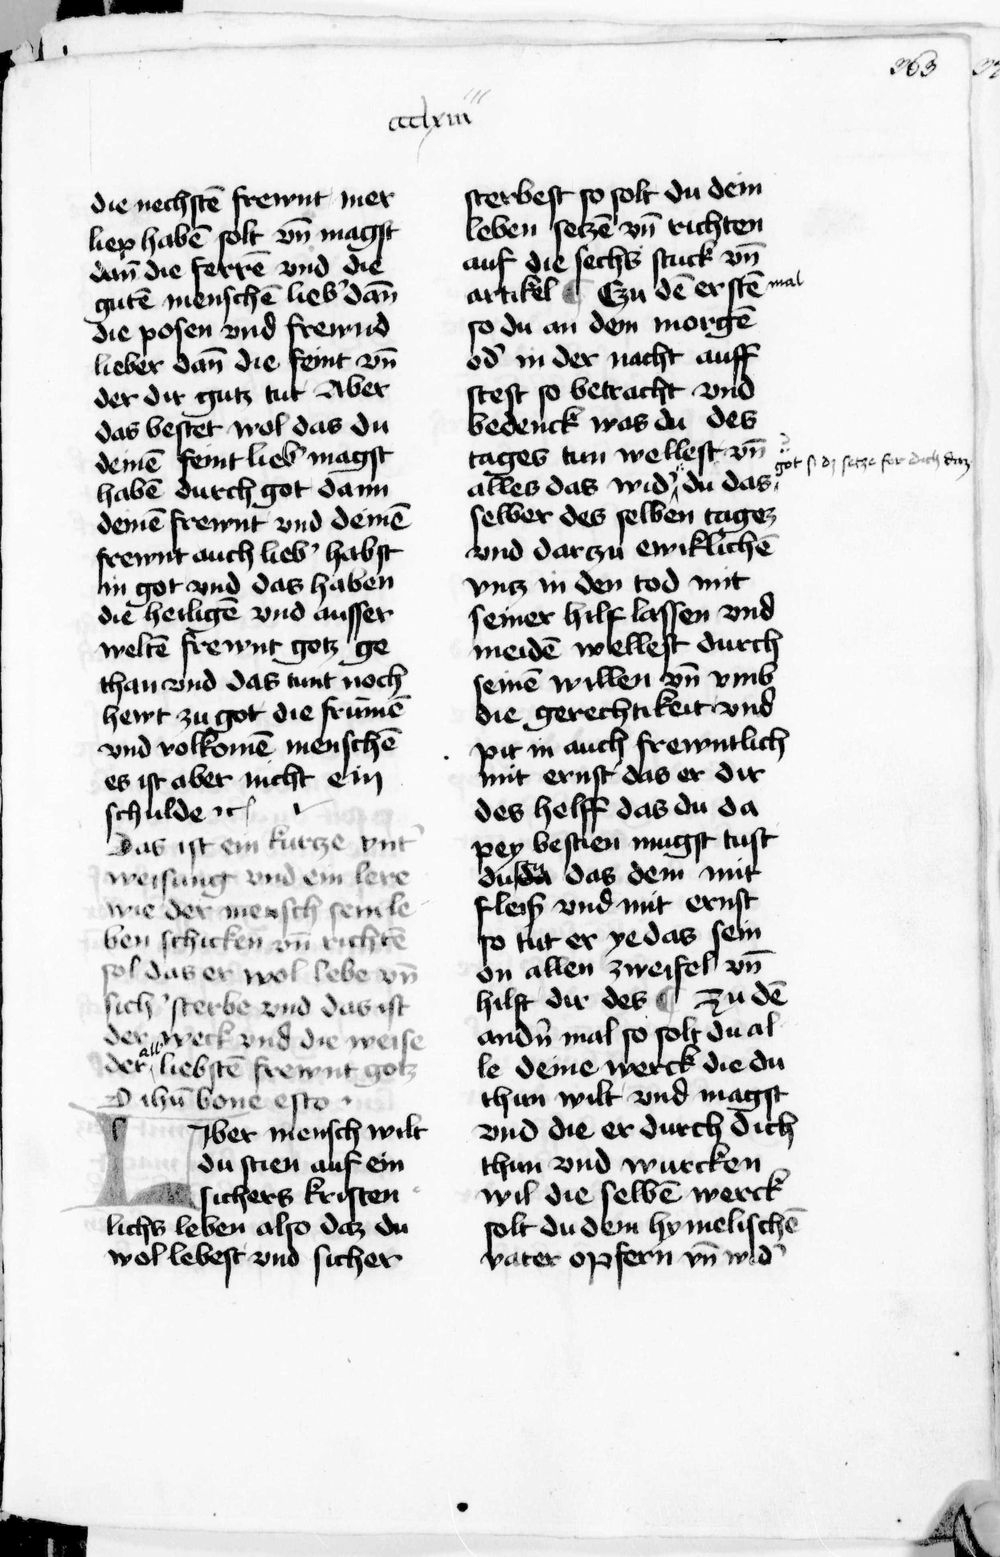 363
ccclxiii
die nechstē frewnt mer
liep habē solt vn̄ magst
dan̄ die ferrē vnd die
gutē menschē lieb' dan̄
die posen vnd frewnd
lieber dan̄ die feint vn̄
der dir gutz tut Aber
das bestet wol das du
deinē feint lieb' magst
habē durch got dann
deinē frewnt vnd deinē
frewnt auch lieb' habst
in got vnd das haben
die heiligē vnd ausser
weltē frewnt gotz ge
than vnd das tunt noch
hewt zu got die frūmē
vnd volkomē menschē
es ist aber nicht ein
schulde ⁊c
Das ist ein kurtze vnt'
weisung vnd ein lere
wie der mensch sein le
ben schicken vn̄ richtē
sol das er wol lebe vn̄
sich' sterbe vnd das ist
der weck vnd die weise
der all liebstē frewnt gotz
O ihū bone esto
LIber mensch wilt
du stien auf ein
sichers kristen
lichs leben also daz du
wol lebest vnd sicher
sterbest so solt du dein
leben setzē vn̄ richten
auf die sechs stuck vn̄
artikel ¶ Czu dē erstē mal
so du an dem morgē
od' in der nacht auff
stest so betracht vnd
bedenck was du des
tages tun wellest vn̄
alles das wid' du das
got
selber des selben tagez
vnd darzu ewiklichē
vntz in den tod mit
seiner hilf lassen vnd
meidē wellest durch
seinē willen vn̄ vmb
die gerechtikeit vnd
pit in auch frewntlich
mit ernst das er dir
des helff das du da
pey bestien mugst tust
du das dem mit
fleiß vnd mit ernst
so tut er ye das sein
on allen zweifel vn̄
hilft dir des ¶ Zu dē
andn̄ mal so solt du al
le deine werck die du
thun wilt vnd magst
vnd die er durch dich
thun vnd wurcken
wil die selbē werck
solt du dem hymelischē
vater opfern vn̄ wid'